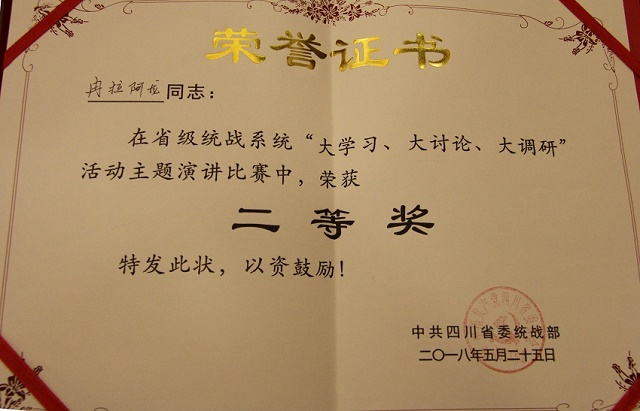 荣誉证书
冉拉阿龙同志：
在省级统战系统“大学习、大讨论、大调研”
活动主题演讲比赛中，荣获
二等奖
特发此状，以资鼓励！
中共四川省委统战部
二〇一八年五月二十五日